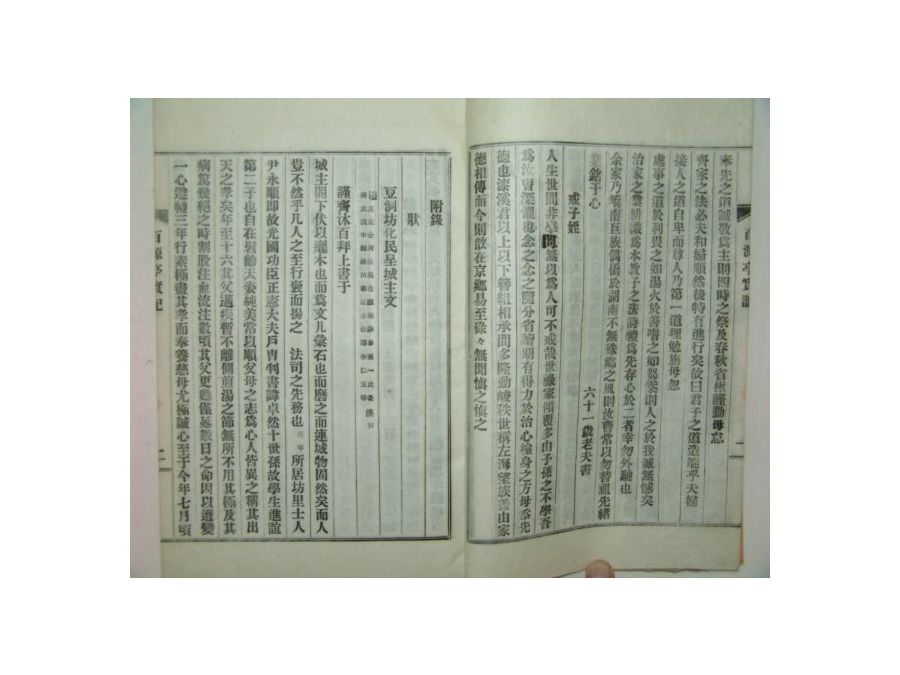 奉先之道誠敬爲主則四時之祭及春秋省楸謹勤毋忘
齊家之法必夫和婦順然後特有進行矣故曰君子之道造端乎夫婦
接人之道自卑而尊人乃第一道理勉旃毋忽
處事之道於利畏之如湯火於善嗜之如芻豢則人之於我誠無憾矣
治家之業耕織爲本敎子之法詩禮爲先存心於二者幸勿外馳也
余家乃嶠南巨族偶僑於湖南不無殊鄕之風則汝曹常以勿替祖先緖
業銘于心
六十一歲老夫書
戒子姪
人生世間非學問無以爲人可不戒哉世祿家傾覆多由子孫之不學吾
爲汝曹深 也念之念之隨分省讀期有得力於治心檢身之方毋忝先
德也漆溪君以上以下簪組相承間多隆勳峻秩世稱左海望族蓋由家
德相傳而今則散在京鄕易至碌々無聞愼之愼之
百源亭實記
附錄
狀
豆洞坊化民呈城主文
謹齊沐百拜上書于
城主閤下伏以 木也而爲文几彙石也而磨之而連城物固然矣而人
豈不然乎凡人之至行褒而揚之 法司之先務也 所居坊里士人
尹永順即故光國功臣正憲大夫戶曹判書諱卓然十世孫故學生進誼
第二子也自在髫齡天姿純美常以順父母之志爲心人皆異之稱其出
天之孝矣年至十六其父遘疾暫不離側煎湯之節無所不用其極及其
病篤幾絕之時割股注血流注數頃其父更甦僅延數日之命因以遭變
一心遵禮三年行素極盡其孝而奉養慈母尤極誠心至于今年七月頃
百源亭實記
二